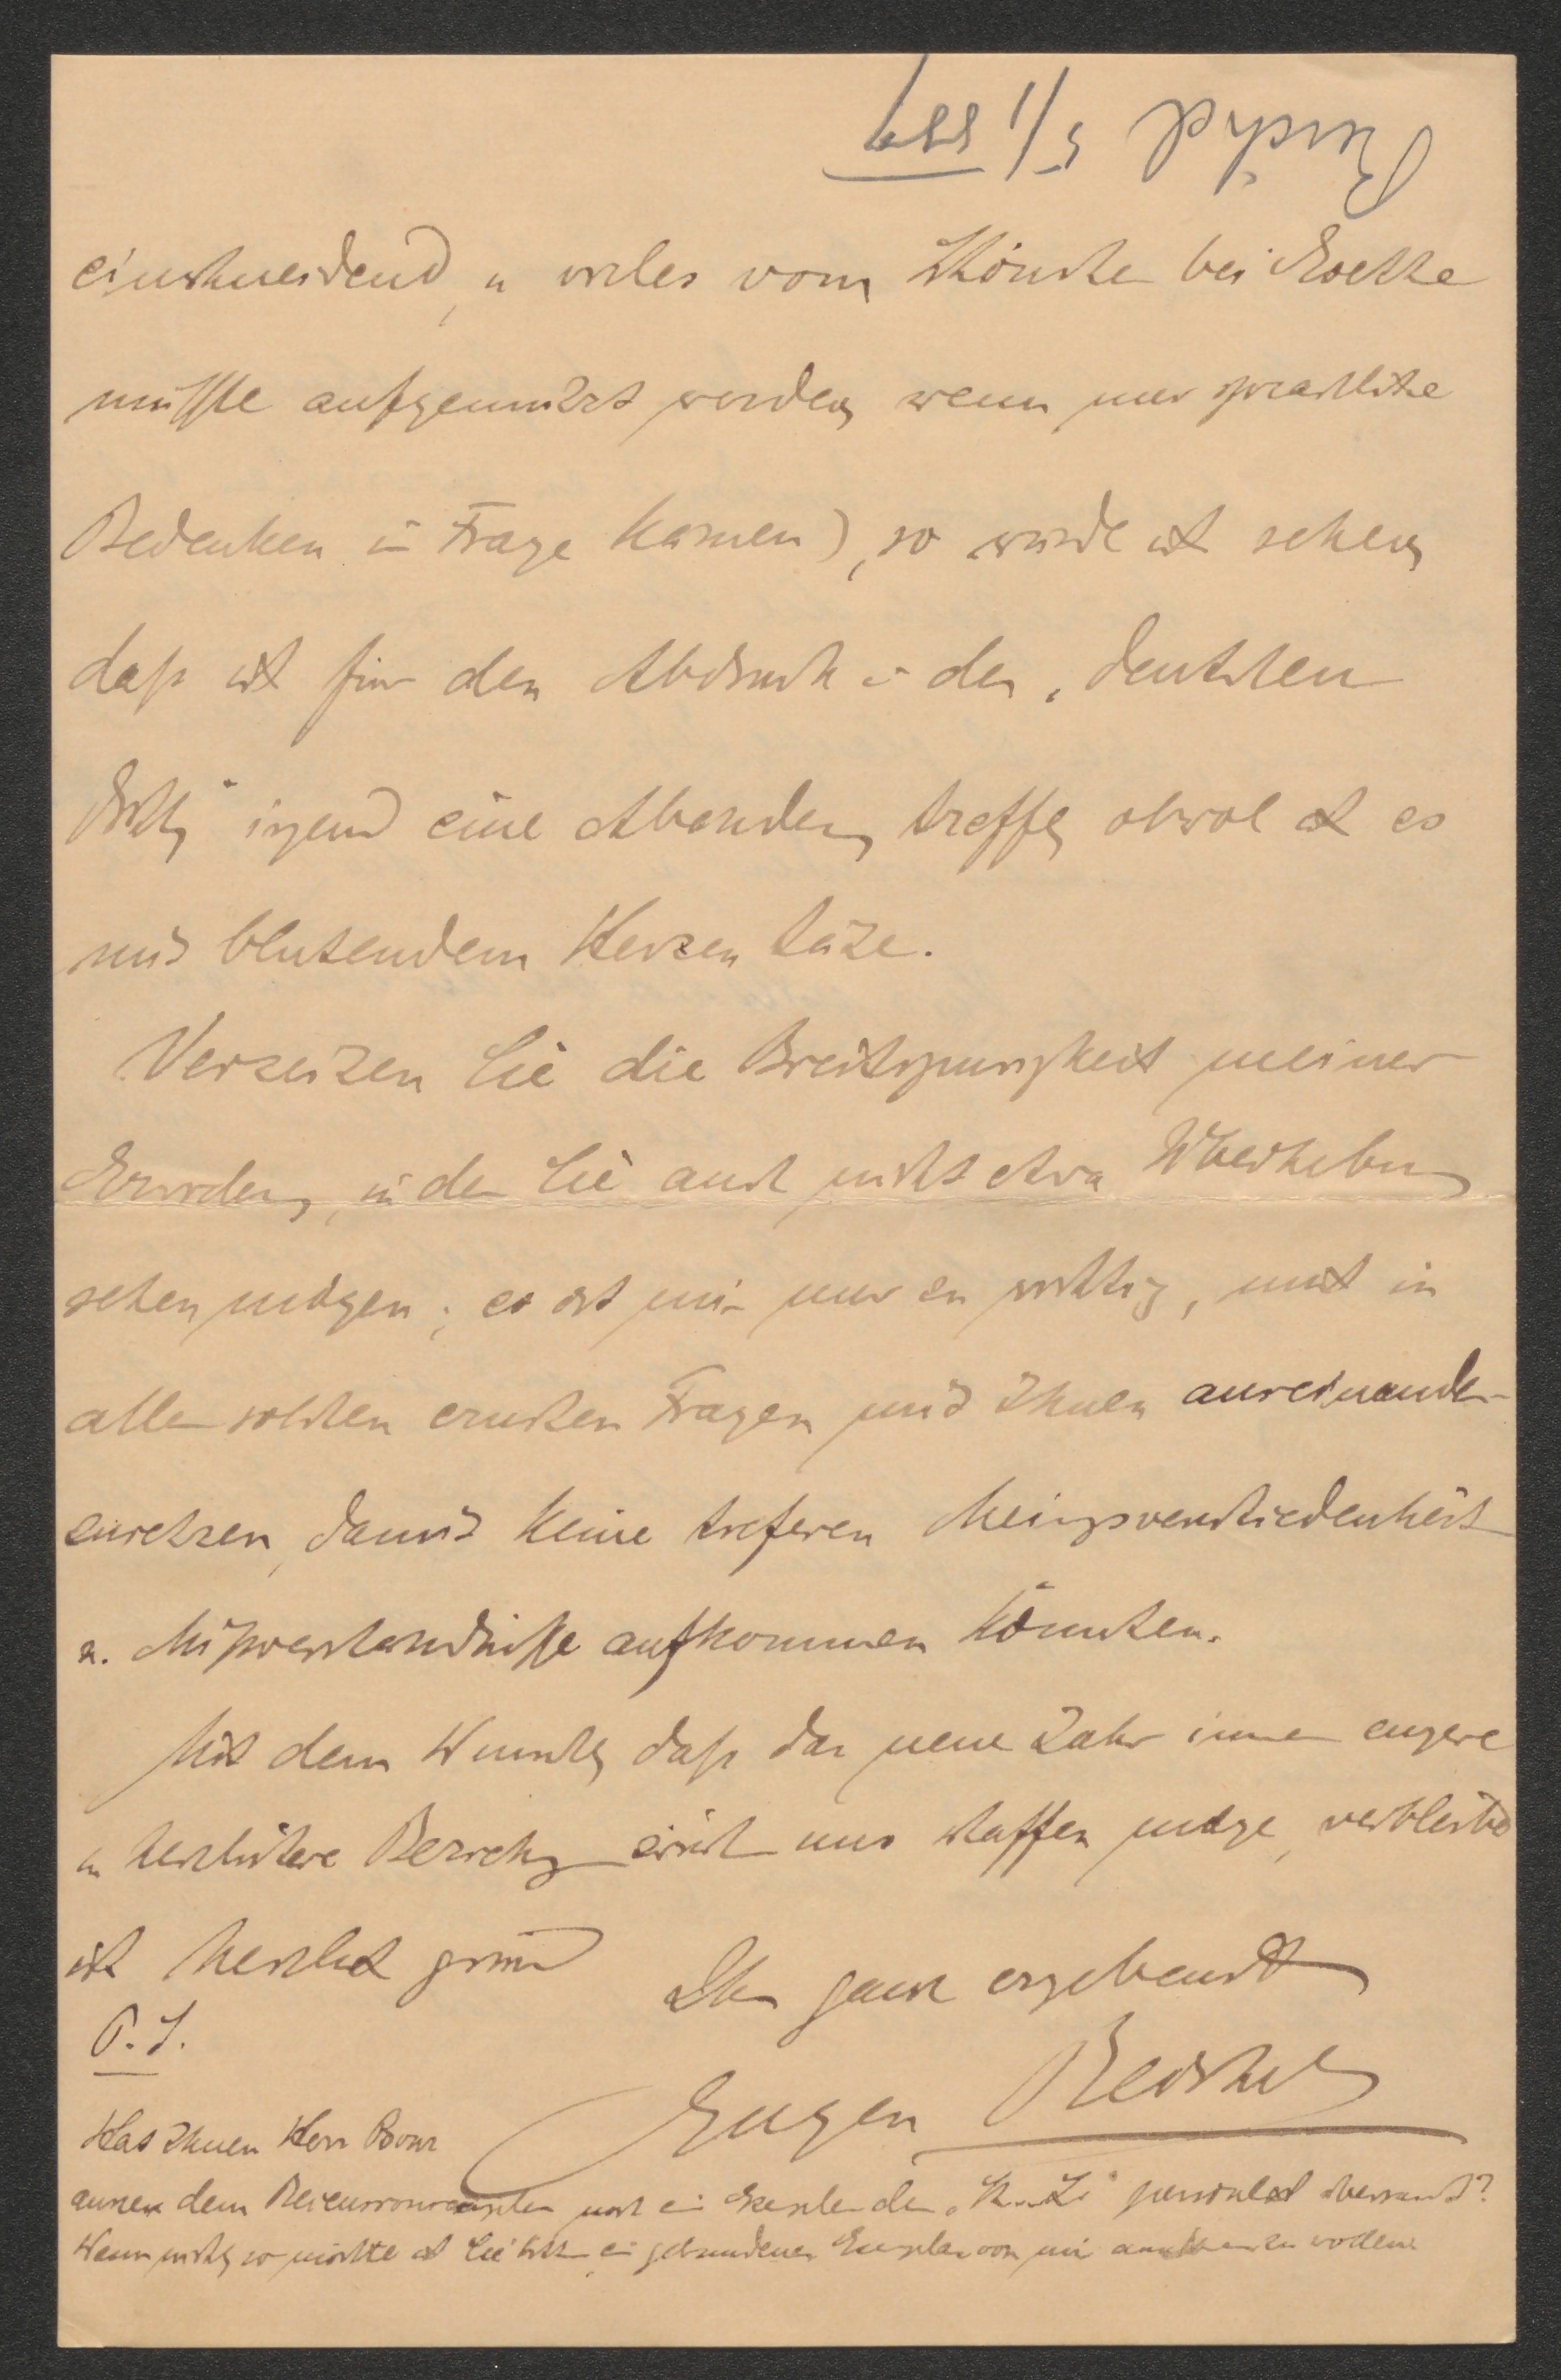 Reichel 5/1 887
einschneidend, u vieles vom Schönsten bei Goethe
müßte aufgemutzt werden, wenn nur sprachliche
Bedenken in Frage kamen), so würde ich sehen,
daß ich für den Abdruck in der „Deutschen
Dichtg“ irgend eine Abänderung treffe, obwol ich es
mit blutendem Herzen täte.
Verzeihen Sie die Breitspurigkeit meiner
Erwiderung, in der Sie auch nichts etwa Überhebung
sehen mögen; es ist mir nur zu wichtig, mich in
allen solchen ernsten Fragen mit Ihnen auseinander-
zusetzen, damit keine tieferen Meingsverschiedenheit
u. Mißverständniße aufkommen könnten.
Mit dem Wunsche, daß das neue Jahr immer engere
u herzlichere Beziehg zwisch uns schaffen möge, verbleibe
ich herzlich grüßend
Ihr ganz ergebenster
Eugen Reichel
P.S.
Hat Ihnen Herr Bonz
ausser dem Recensionsexemplar noch ein Exemplar der persönlich übersandt?
Wenn nicht, so möchte ich Sie bitten ein gebundenes Exemplar von mir annehmen zu wollen.